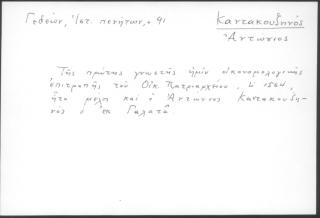 Γεδεών, Ἱστ. πενήτων, σ 91
Καντακουζηνός
Ἀντώνιος
Τῆς πρώτης γνωστῆς ἡμῖν οἰκονομολογικῆς
ἐπιτροπῆς τοῦ Οἰκ. Πατριαρχείου, 1564,
ἦτο μέλη καὶ ὁ Ἀντώνιος Καντακουζη-
νός ὁ ἐκ Γαλατᾶ.